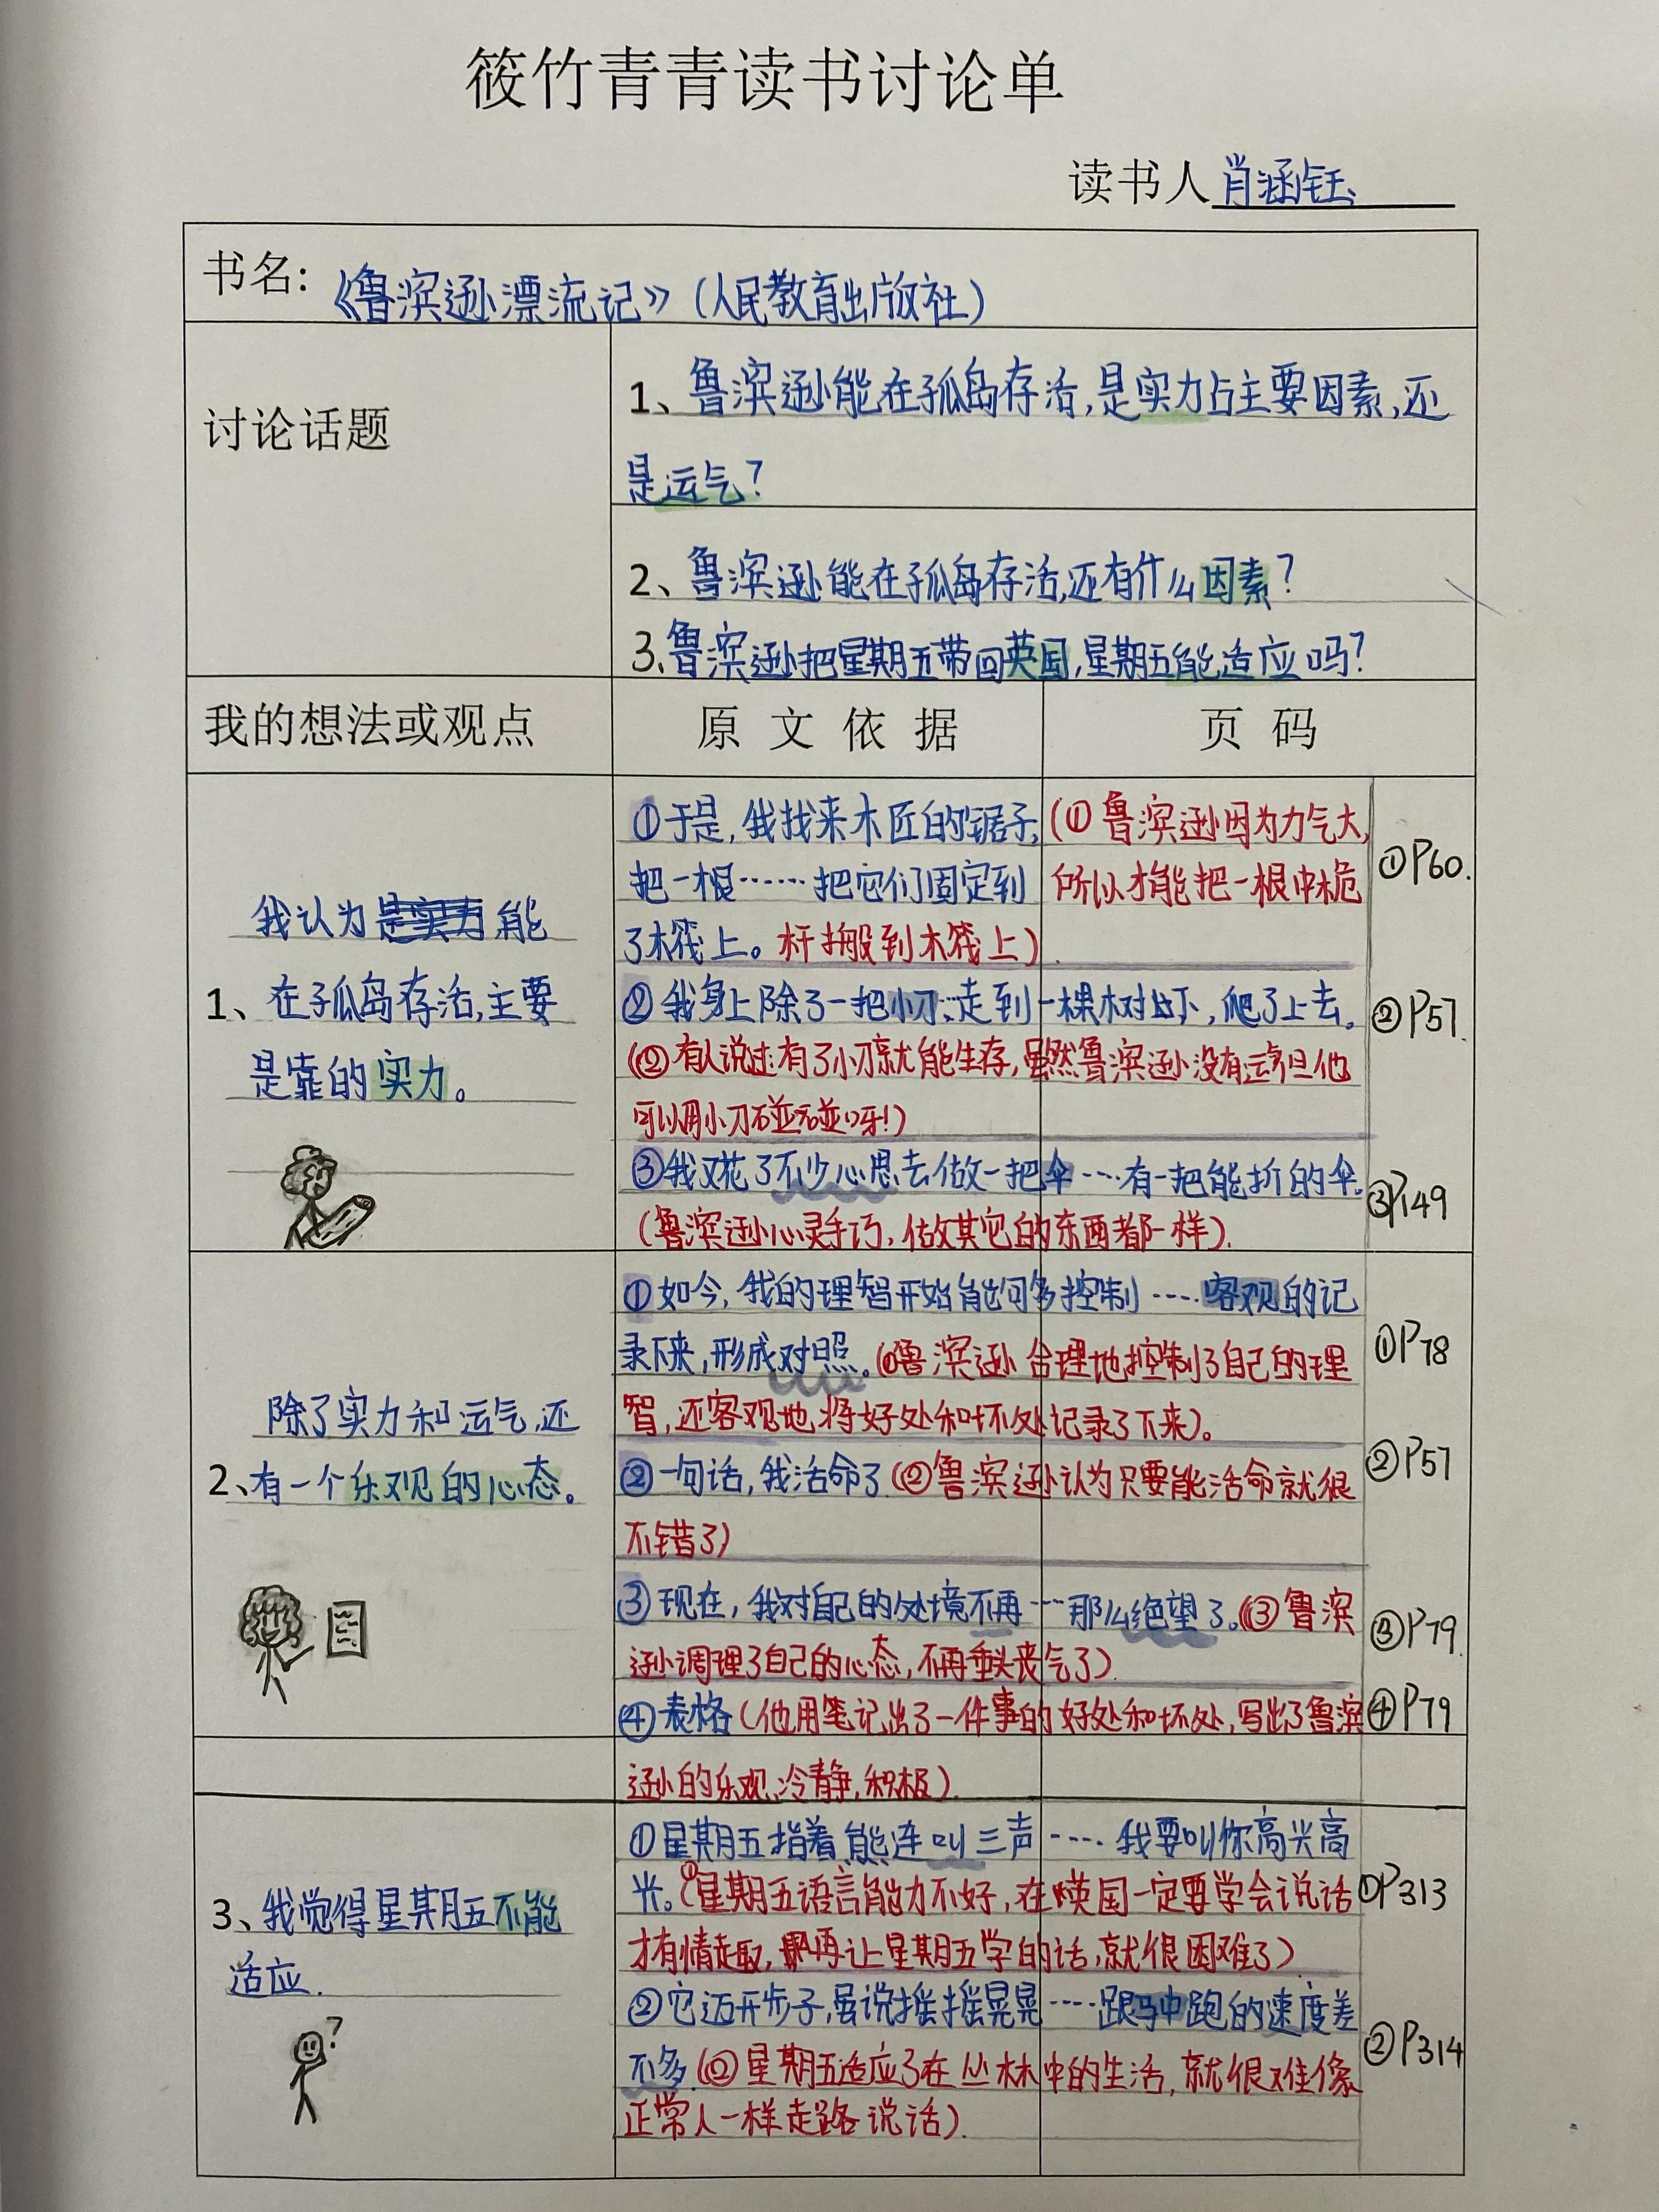 筱竹青青读书讨论单
读书人 肖涵钰
书名：《鲁滨逊漂流记》（人民教育出版社）
讨论话题
1、鲁滨逊能在孤岛存活，是实力占主要因素，还
是运气？
2、鲁滨逊能在孤岛存活，还有什么因素？
3、鲁滨逊把星期五带回英国，星期五能适应吗？
我的想法或观点
原文依据
页码
我认为是实力能
1、在孤岛存活，主要
是靠的实力。
①于是，我找来木匠的锯子，
把一根……把它们固定到
了木筏上。
（①鲁滨逊因为力气大，
所以才能把一根中桅
杆搬到木筏上）
①P60.
②我身上除了一把小刀…走到一棵树下，爬了上去。
②P57.
（②有人说过有了小刀就能生存，虽然鲁滨逊没有运气但他
可以用小刀碰碰呀！）
③我又花了不少心思去做一把伞……有一把能折的伞。
③P149
（鲁滨逊心灵手巧，做其它的东西都一样）.
除了实力和运气，还
2、有一个乐观的心态。
①如今，我的理智开始能够控制……客观的记
录下来，形成对照。（①鲁滨逊合理地控制了自己的理
智，还客观地将好处和坏处记录了下来）。
①P78
②一句话，我活命了（②鲁滨逊认为只要能活命就很
不错了）
②P57
③现在，我对自己的处境不再……那么绝望了。（③鲁滨
逊调理了自己的心态，不再垂头丧气了）.
③P79
④表格（他用笔记出了一件事的好处和坏处，写出了鲁滨
逊的乐观、冷静，积极）.
④P79
3、我觉得星期五不能
适应.
①星期五指着熊连叫三声……我要叫你高兴高
兴。（①星期五语言能力不好，在英国一定要学会说话
才有情趣，再让星期五学的话，就很困难了）.
①P313
②它迈开步子，虽说摇摇晃晃……跟马中跑的速度差
不多.（②星期五适应了在丛林中的生活，就很难像
正常人一样走路说话）.
②P314
?